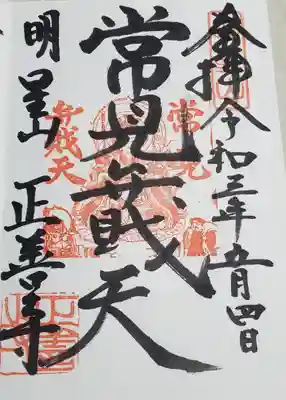 奉拝 令和三年五月四日
常見弁戝天
明星山 正善寺
常見
弁戝天